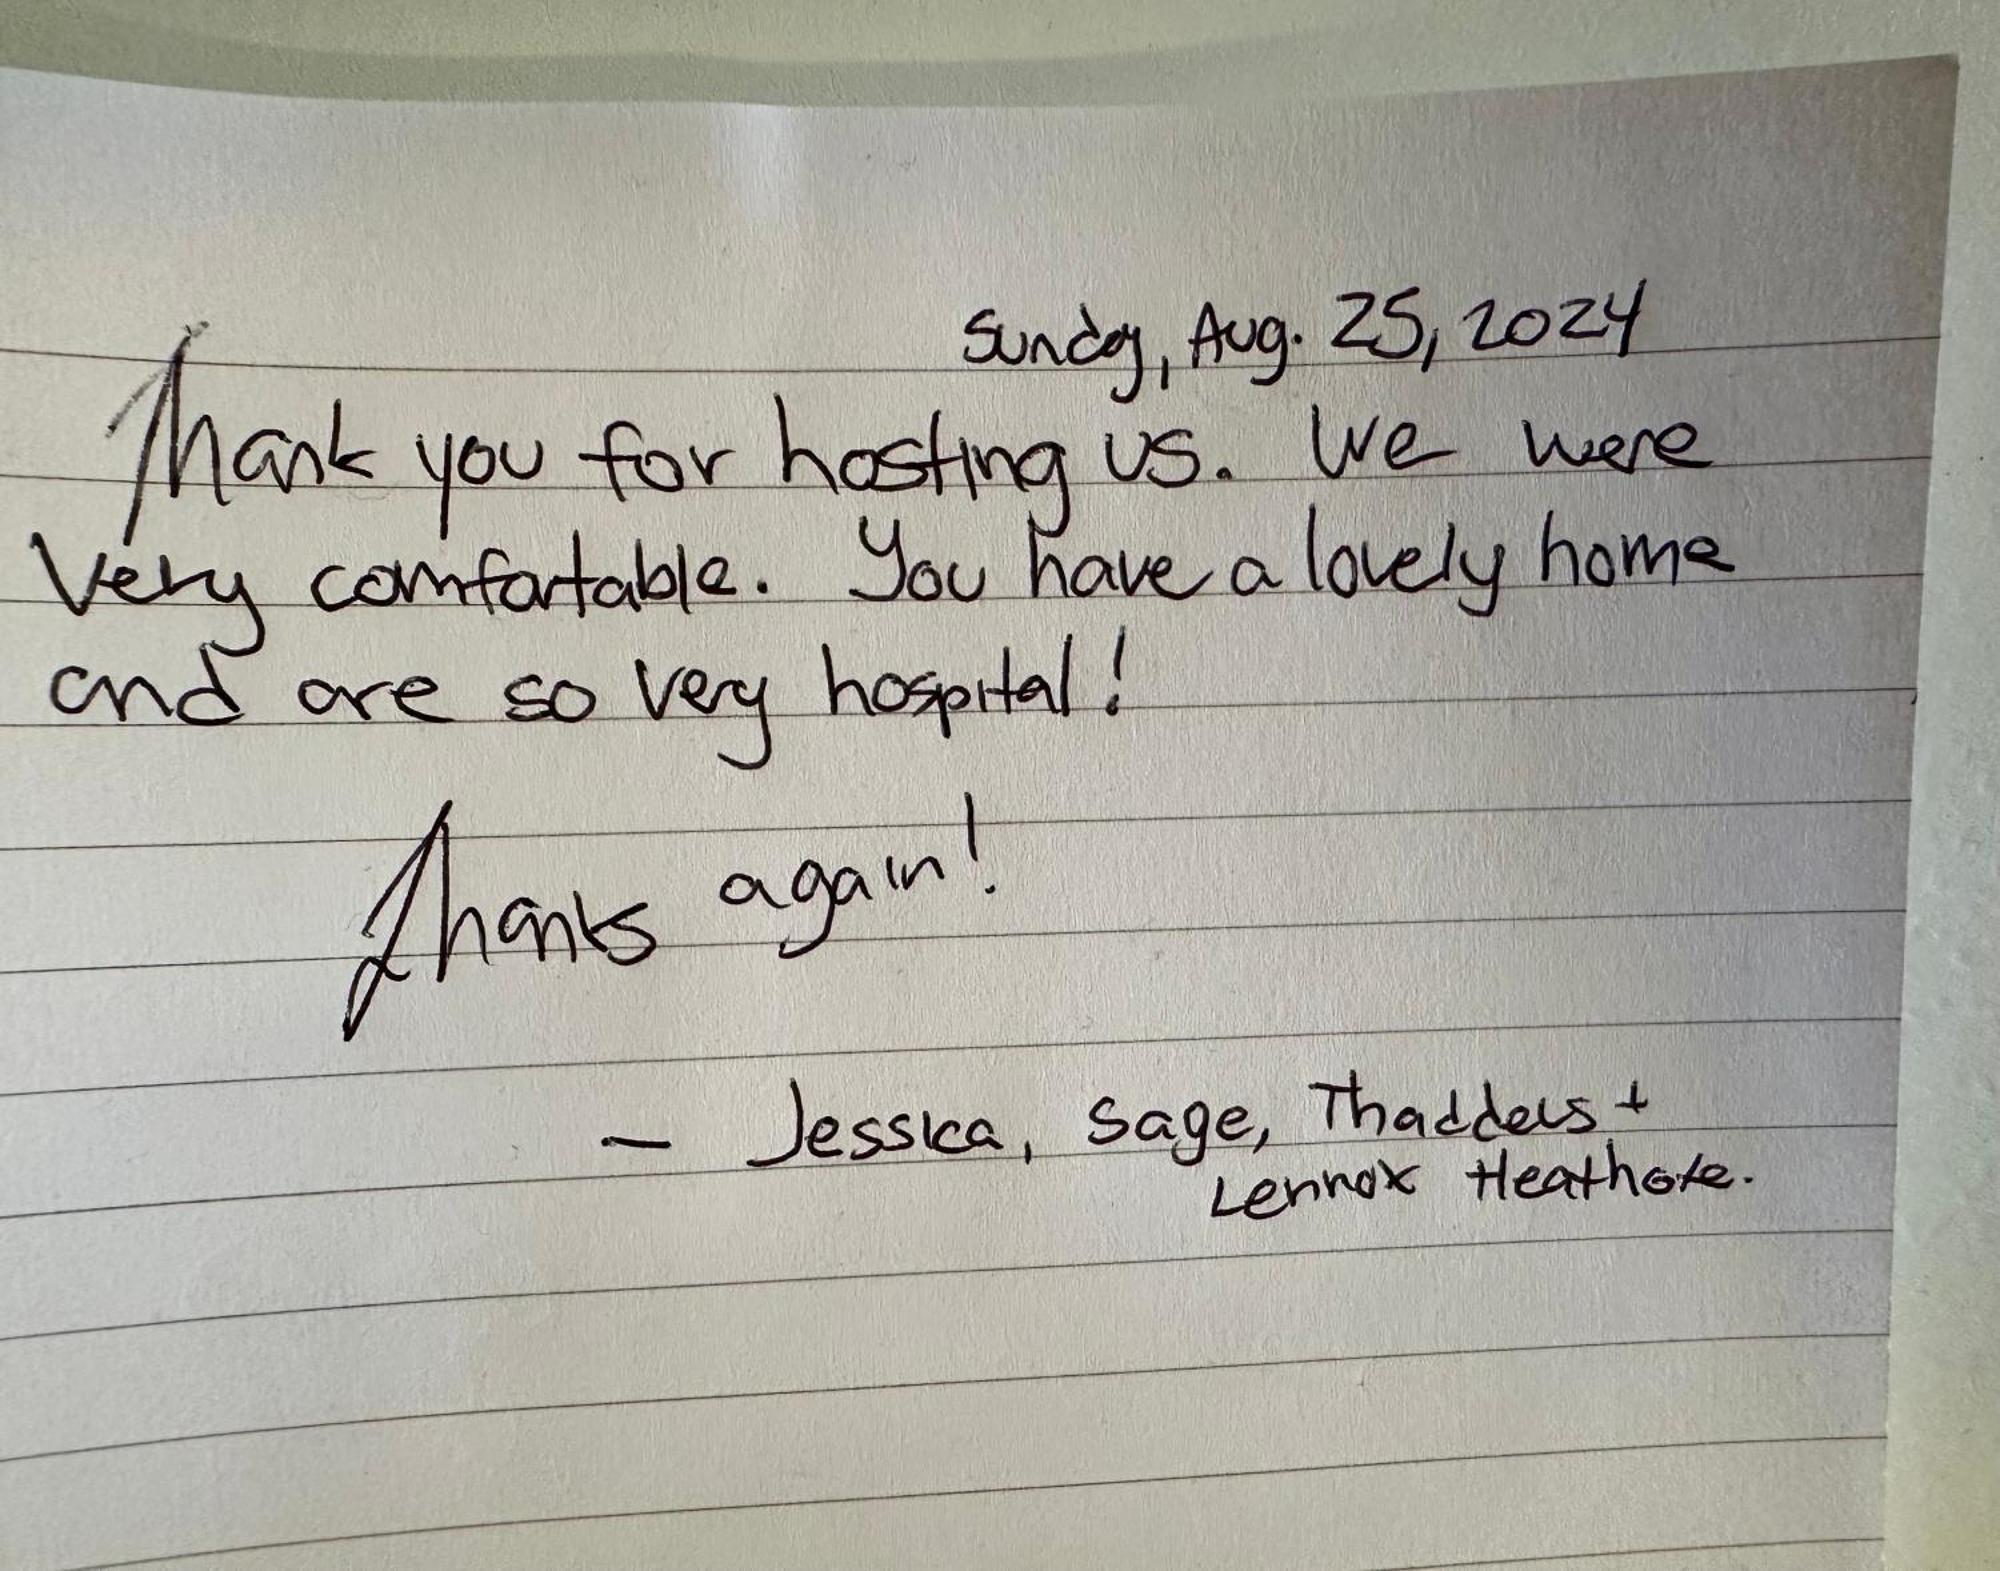 Sunday, Aug. 25, 2024
Thank you for hosting us. We were
very comfortable. You have a lovely home
and are so very hospital!
Thanks again!
— Jessica, Sage, Thaddeus +
Lennox